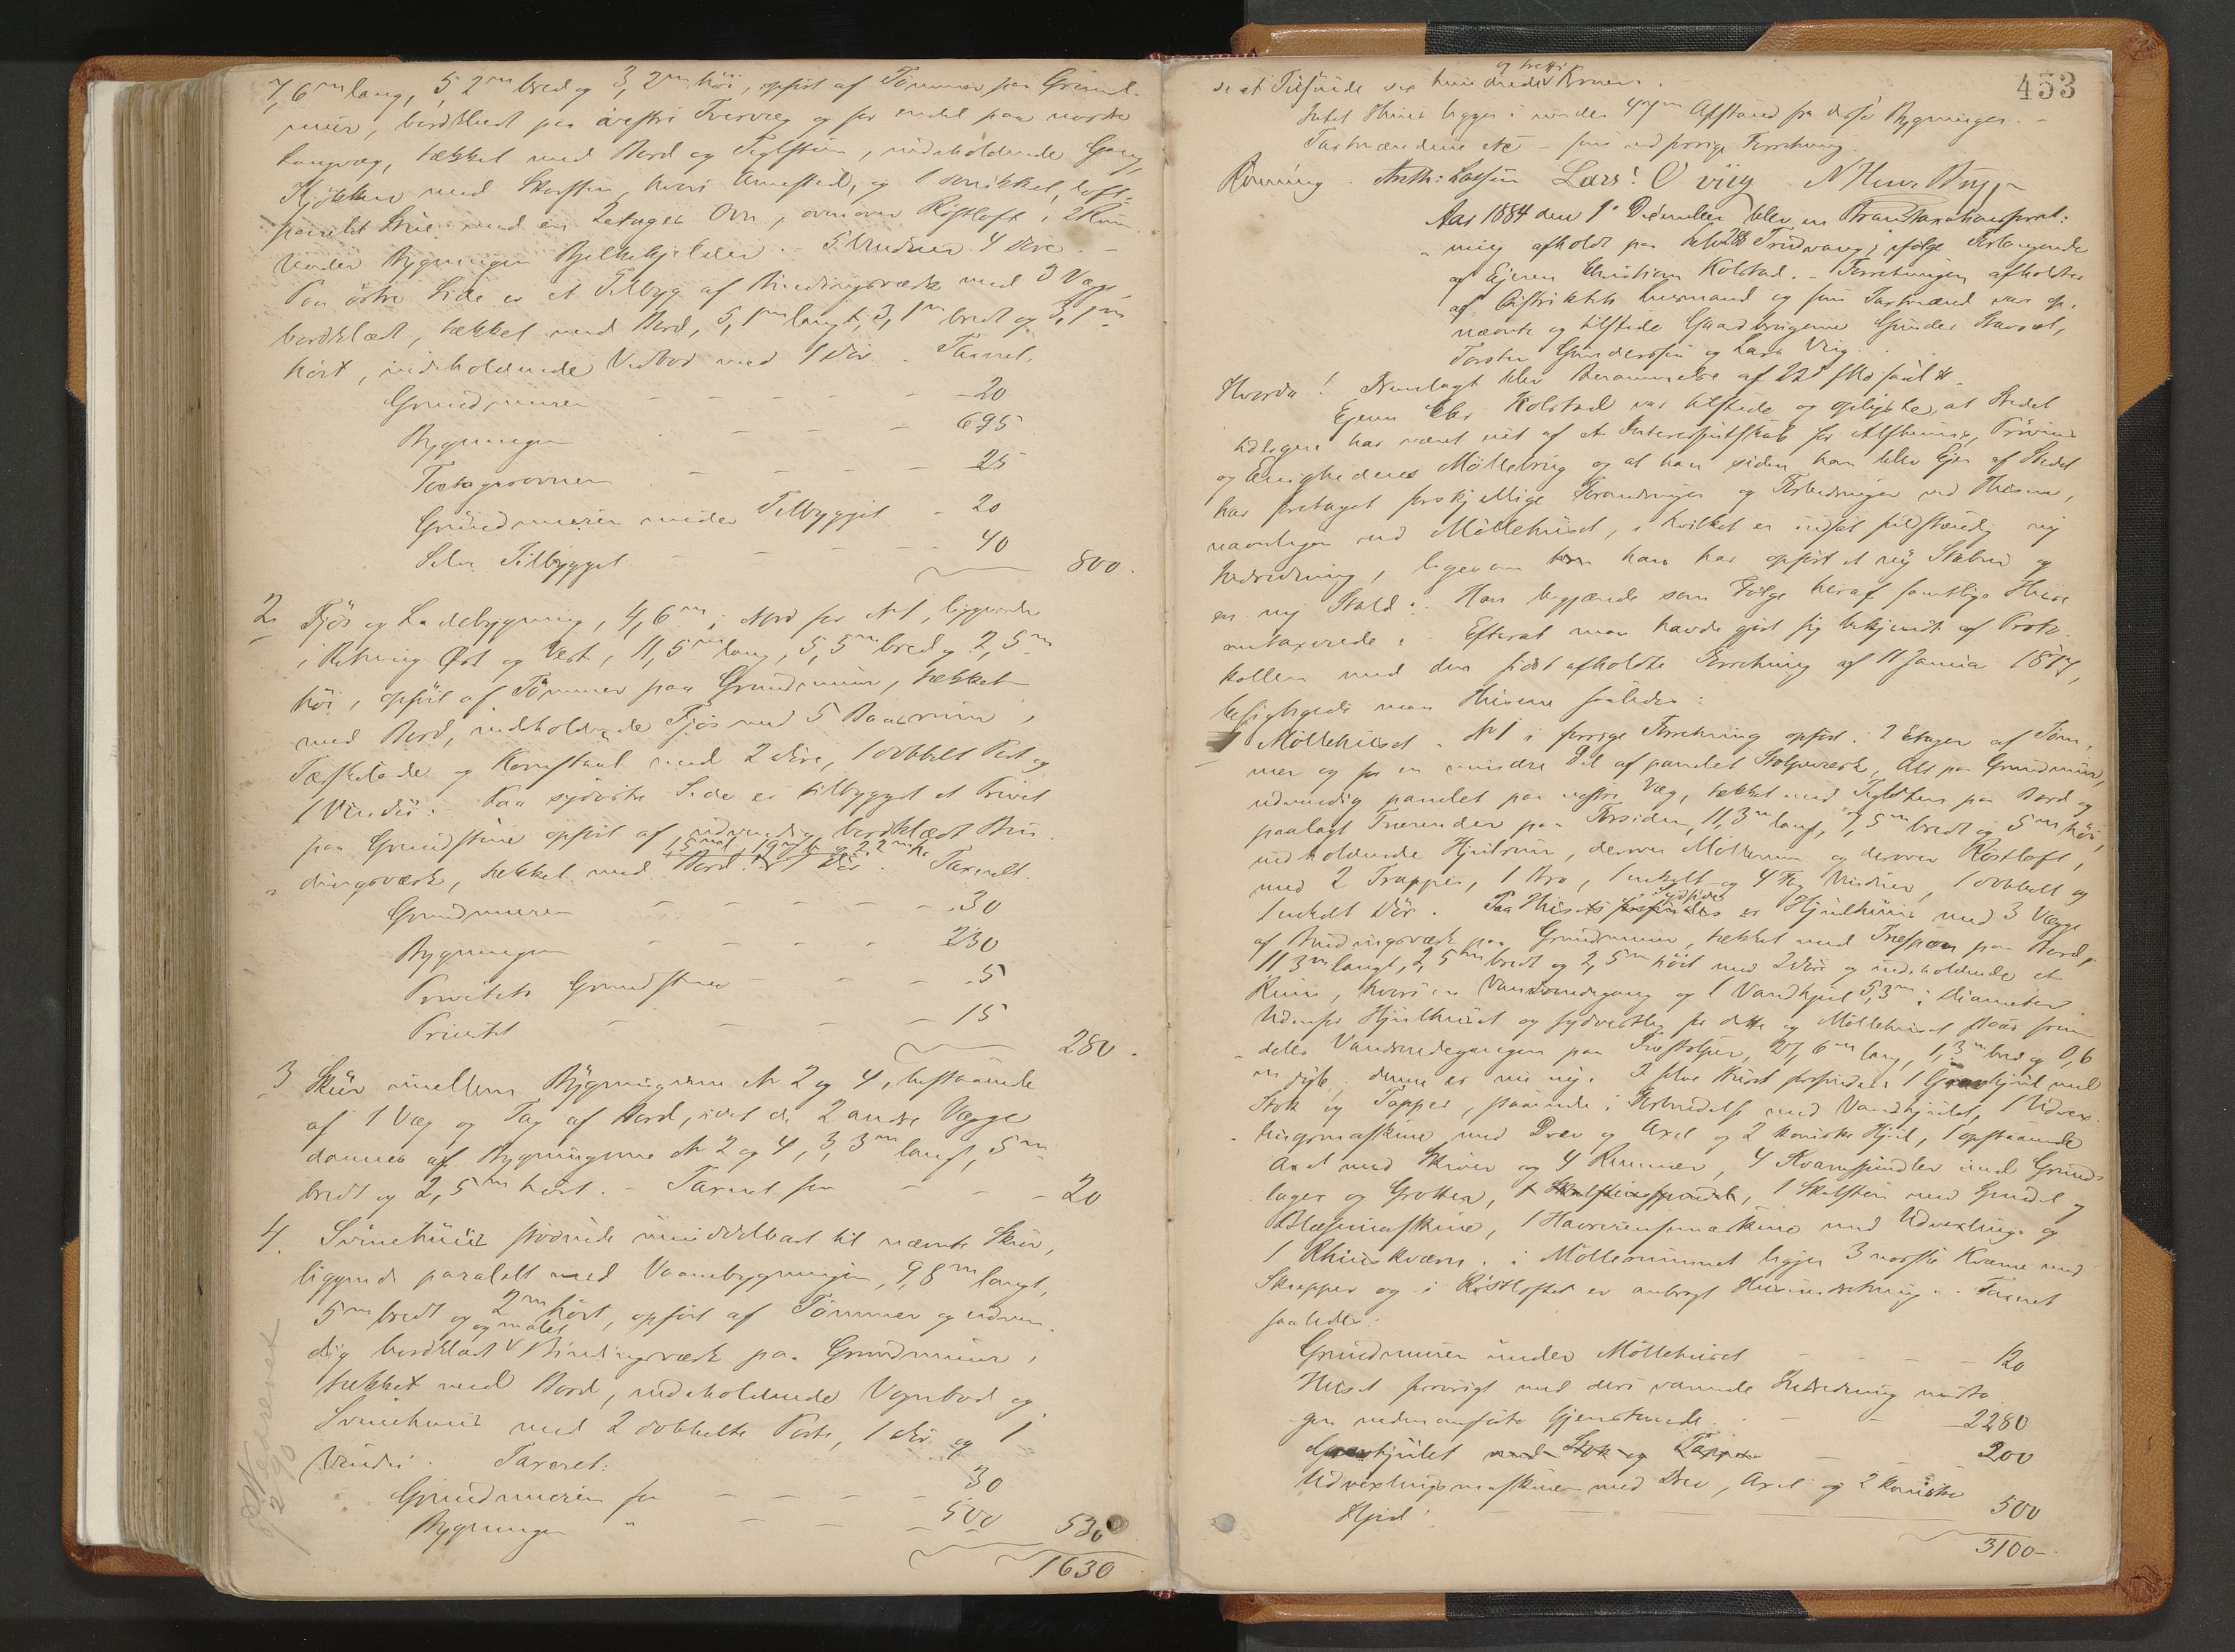 7,6 m lang, 5,2 m bred og 3,2 m höi, opfört af Tömmer paa Grund-
muur, bordklædt paa Tvervæg og for endel paa nordre
Langvæg, tækket med Bord og Teglsteen, indeholdende Gang,
Kjökken med Skorsten, hvori Arnested, og 1 loft-
panelet Stue med en 2etages Ovn, ovenover Röstloft i 2 Rum.
Under Bygningen Bjelkekjelder. 5 Vinduer 4 Döre. -
Paa östre Side er et Tilbyg af Bindingsværk med 3 Vægge,
bordklædt, tækket med Bord, 5,1 m langt, 3,1 m bredt og 3,1 m
höit, indeholdende Vedbod med 1 Dör. Taxeret.
Grundmuren - - - - - 20
Bygningen - - - 695
Toetagesovnen - - - - 25
Grundmuren under Tilbygget - 20
Selve Tilbygget - - - - 40
800.
2 Fjös og Ladebygning, 4,6 m i Nord for No 1, liggende
i Retning Öst og Vest, 11,5 m lang, 5,5 m bred og 2,5 m
höi, opfört af Tömmer paa Grundmuur, tækket
med Bord, indeholdende Fjös med 5 Baasrum,
Tærskelade og Kornstaal med 2 Döre, 1 dobbelt Port og
1 Vindu. Paa sydöstre Side er tilbygget et Privet
paa Grundstene opfört af udvendig bordklædt Bin-
1,5 m l, 1,9 m b og 2,2 m h.
dingsværk, tækket med Bord. 1 Dör. Taxeret.
Grundmuren - - - - 30
Bygningen - - - - 230
Privetets Grundstene - - - 5
Privetet - - - - 15
280.
3 Skur mellem Bygningerne No 2 og 4, bestaaende
af 1 Væg og Tag af Bord, idet de 2 andre Vægge
dannes af Bygningerne No 2 og 4, 3,3 m langt, 5 m
bredt og 2,5 m höit. - Taxeret for - - - 20
4. Svinehuus stödende umiddelbart til nævnte Skur,
liggende paralelt med Vaanebygningen, 9,8 m langt,
5 m bredt og 2 m höit, opfört af Tömmer og udven-
og malet
dig bordklædt Bindingsværk paa Grundmuur,
tækket med Bord, indeholdende Vognbod og
Svinehuus med 2 dobbelte Porte, 1 Dör og 1
Vindu. Taxeret:
Grundmuren for - - - - 30
Bygningen " - - - 500
530
1630
453
og tretti
de et Tusinde sex hundrede Kroner.
Intet Huus ligger i mindre Afstand fra disse Bygninger. -
Taxmændene etc - som ved forrige Forretning.
Rönning. Anth: Larsen Lars O Viig
Aar 1884 den 1 December blev en Brandtaxationsforret-
ning afholdt paa ifölge Forlangende
af Ejeren Christian Kolstad. - Forretningen afholdtes
af Distriktets Lensmand og som Taxtmænd var op-
nævnte og tilstede Gaardbrugerne Gunder
Torsten Gundersen og Lars Viig.
Hvorda! Fremlagt blev Berammelse af
Ejeren Chr Kolstad var tilstede og oplyste, at Stedet
tidligere har været eiet af et Interessentskab for
og Enighedens Möllebrug og at han siden han blev Ejer af Stedet
har foretaget forskjellige Forandringer og Forbedringer ved Husene,
navnligen ved Möllehuset, i hvilket er indsat fuldstændig ny
Indredning, ligesom han har opfört et nyt Stabur og
en ny Stald. Han begjærede som Fölge heraf samtlige Huse
omtaxerede. Efterat man havde gjort sig bekjendt af Proto-
kollen med den sidst afholdte Forretning af 11 Januar 1877,
besigtigede man Husene saaledes:
1 Möllehuset. No 1 i forrige Forretning opfört i 2 Etager af Töm-
mer og for en mindre Del af panelet Stolpeværk, Alt paa Grundmuur,
udvendig panelet paa vestre Væg, tækket med Teglsten paa Bord og
paalagt Trærender paa Forsiden, 11,3 m langt, 7,5 m bredt og 5 m höi,
indeholdende Hjulrum, derover Möllerum og derover Röstloft,
med 2 Trapper, 1 Bro, 1 enkelt og 4 Fag Vinduer, 1 dobbelt og
Sydside
1 enkelt Dör. Paa Husets er Hjulhuus med 3 Vægge
af Bindingsværk paa Grundmuur, tækket med Træspaan paa Bord,
11,3 m langt, 2,5 m bredt og 2,5 m höit med 2 Döre og indeholdende et
Rum, hvori er Vandrendegang og 1 Vandhjul 5,3 m i Diameter.
Udenfor Hjulhuset og sydvestlig for dette og Möllehuset staar frem-
deles Vandrendegangen paa Træstolper, 27,6 m lang, 1,3 m bred og 0,6
m dyb, denne er nu ny. I selve Huset forfindes 1 hjul med
Stok og Tapper, staaende i Forbindelse med Vandhjulet, 1 Udvex-
lingsmaskine med Drev og Axel og 2 koniske Hjul, 1 opstaaende
Axel med Skiver og 4 Remmer, 4 Kvarnspindler med Grund-
lager og Grotter, 1 Skalsteinspindel, 1 Skalsten med Spindel og
Blæsemaskine, 1 Havrerensemaskine med Udvexling og
1 Rhinskværn. i Möllerummet ligger 3 norske Kværne med
Skrepper og i Röstloftet er anbragt Heiseindretning. Taxeret
saaledes:
Grundmuren under Möllehuset - - - - 120
Huset forövrigt med deri værende Indredning undta-
gen nedenanförte Gjenstande. - - - 2280
hjulet med Stok og Tapper - - 200
Udvexlingsmaskinen med Drev, Axel og 2 koniske
Hjul - - - 500
3100-